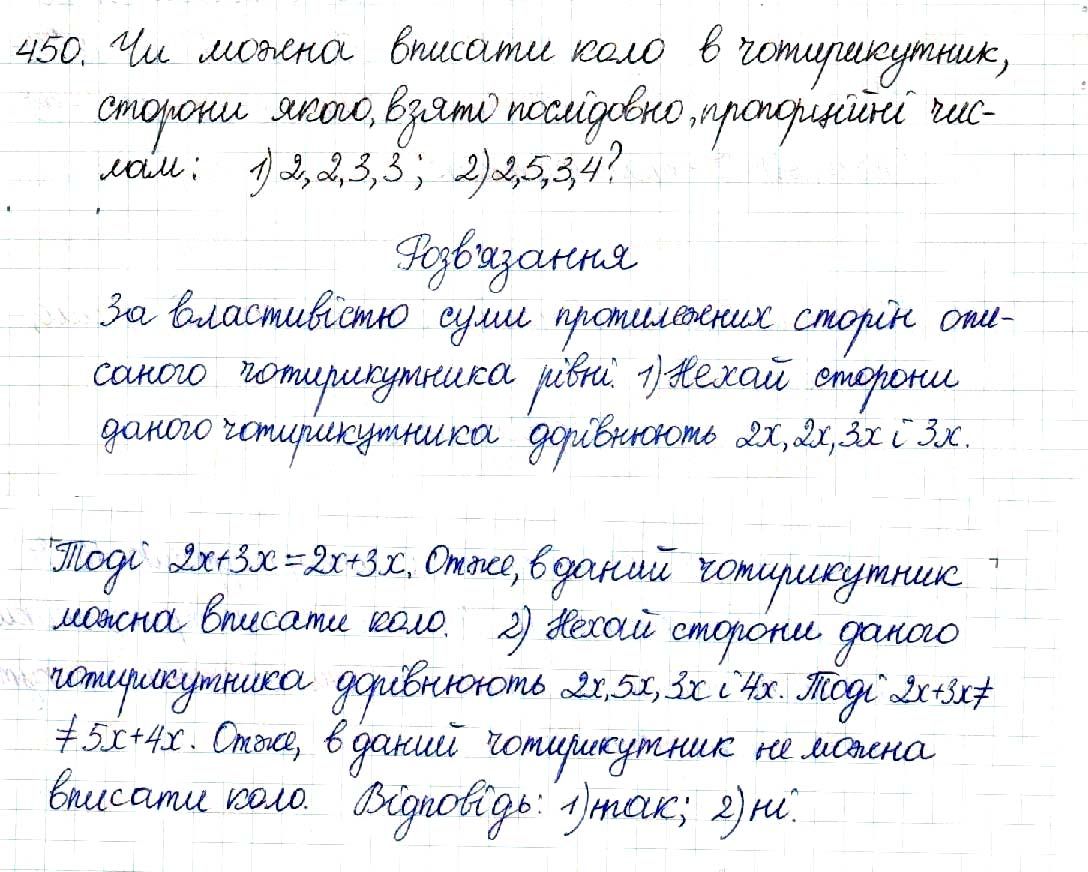 450. Чи можна вписати коло в чотирикутник,
сторони якого, взяті послідовно, пропорційні чис-
лам: 1) 2, 2, 3, 3; 2) 2, 5, 3, 4?
Розв'язання
За властивістю суми протилежних сторін опи-
саного чотирикутника рівні. 1) Нехай сторони
даного чотирикутника дорівнюють 2x, 2x, 3x і 3x.
Тоді 2x+3x=2x+3x. Отже, в даний чотирикутник
можна вписати коло. 2) Нехай сторони даного
чотирикутника дорівнюють 2x, 5x, 3x і 4x. Тоді 2x+3x≠
≠5x+4x. Отже, в даний чотирикутник не можна
вписати коло. Відповідь: 1) так; 2) ні.